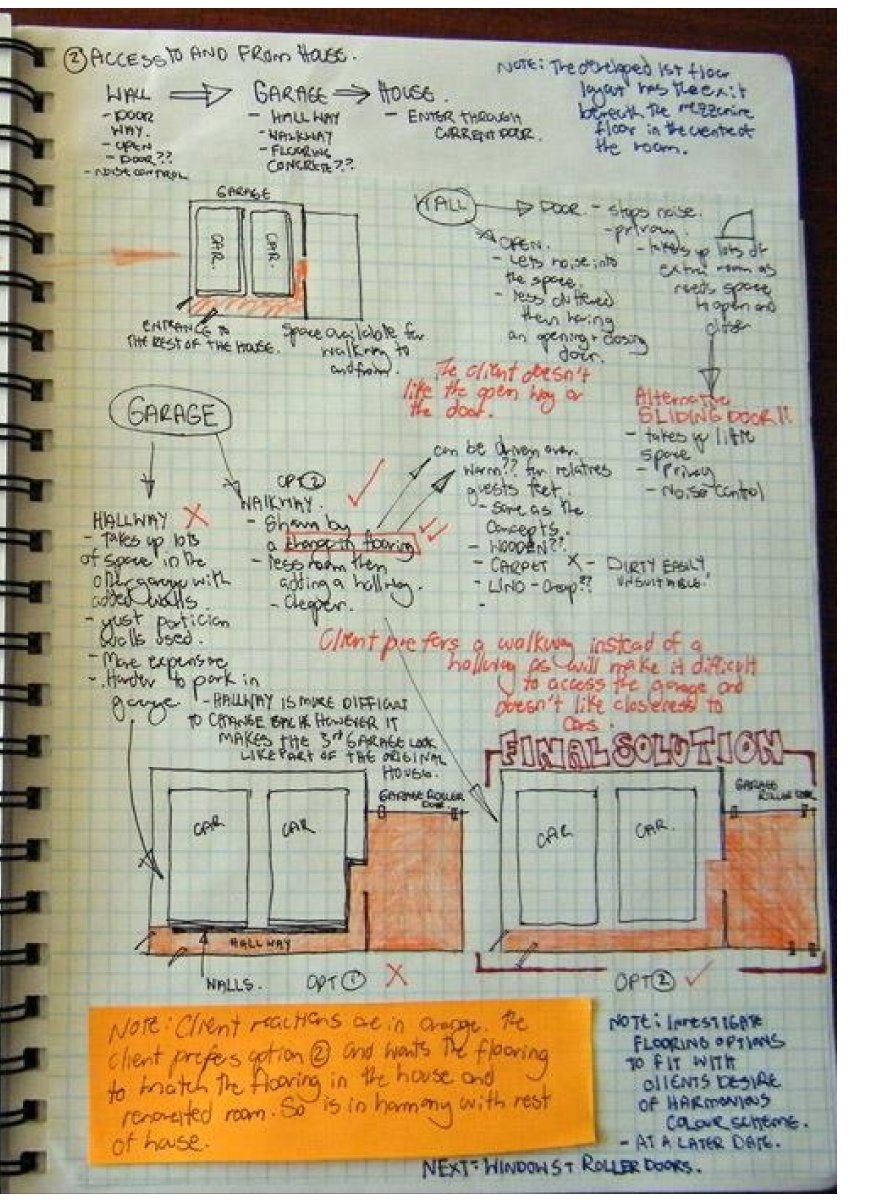 ② ACCESS TO AND FROM HOUSE.
NOTE: The developed 1st floor
layout has the exit
beneath the mezzanine
floor in the centre of
the room.
WALL ⇒ GARAGE → HOUSE.
- DOOR
WAY.
- OPEN
- DOOR??
- NOISE CONTROL
- HALLWAY
- WALKWAY
- FLOORING
CONCRETE??
- ENTER THROUGH
CURRENT DOOR.
GARAGE
CAR
CAR
ENTRANCE TO
THE REST OF THE HOUSE.
Space available for
walkway to
and from.
WALL → DOOR - stops noise.
- privacy.
- takes up lots of
extra room as
needs space
to open and
close
OPEN.
- Lets noise into
the space.
- less cluttered
then having
an opening + closing
door.
The client doesn't
like the open way or
the door.
Alternative
SLIDING DOOR!!
- takes up little
space
- Privacy
- Noise control
GARAGE
HALLWAY X
- Takes up lots
of space in the
other garage with
added walls.
- just partician
walls used.
- More expensive
- Harder to park in
garage
- HALLWAY IS MORE DIFFICULT
TO CHANGE BACK HOWEVER IT
MAKES THE 3rd GARAGE LOOK
LIKE PART OF THE ORIGINAL
HOUSE.
OPT ②
WALKWAY.
- Shown by
a change in flooring
- less room then
adding a hallway.
- Cheaper.
can be driven over.
warm?? for relatives
guests feet.
- Same as the
Concepts.
- WOODEN??
- CARPET X - DIRTY EASILY
UNSUITABLE!
- LINO - Cheap??
-
Client prefers a walkway instead of a
hallway as will make it difficult
to access the garage and
doesn't like closeness to
cars.
FINAL SOLUTION
CAR
CAR
GARAGE ROLLER
DOOR.
HALLWAY
WALLS.
OPT ① X
CAR
CAR.
GARAGE
ROLLER DOOR
OPT ② ✓
Note: Client reactions are in orange. The
client prefers option ② and wants the flooring
to match the flooring in the house and
renovated room. So is in harmony with rest
of house.
NOTE: INVESTIGATE
FLOORING OPTIONS
TO FIT WITH
CLIENTS DESIRE
OF HARMONIOUS
COLOUR SCHEME.
- AT A LATER DATE.
NEXT: WINDOWS + ROLLER DOORS.